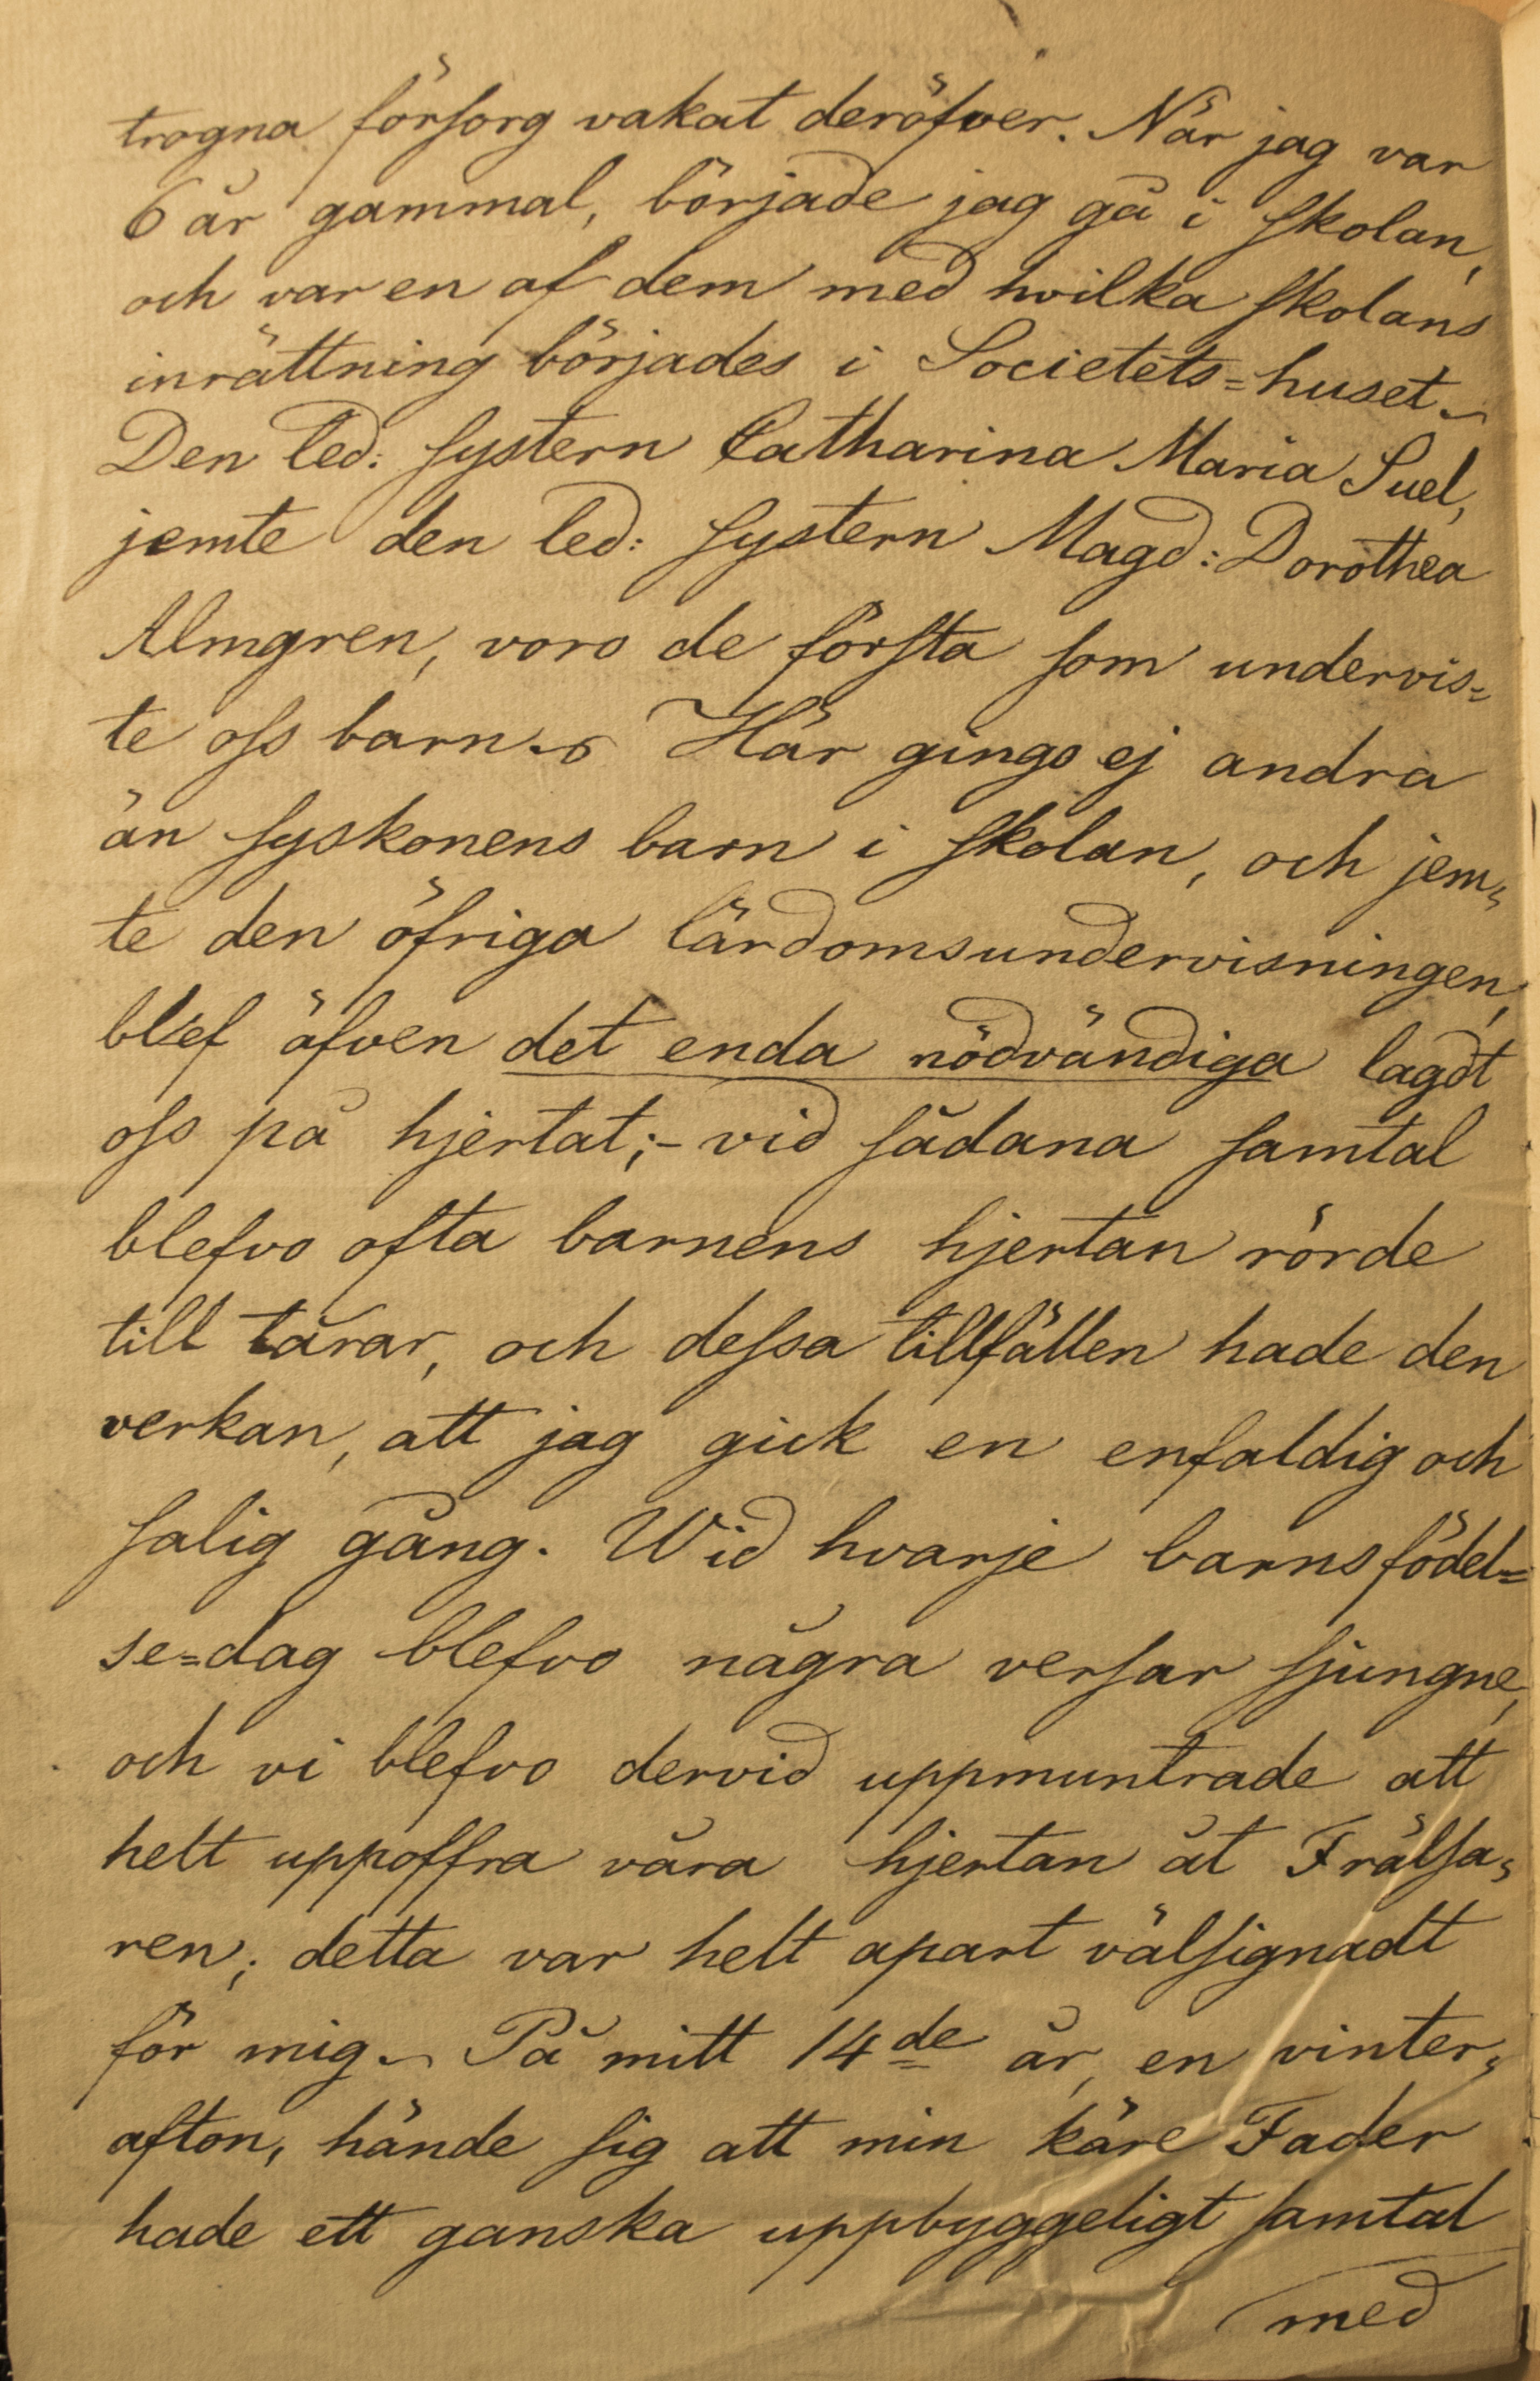 trogna försorg vakat deröfver. När jag var
6 år gammal, började jag gå i skolan,
och var en af dem med hvilka skolans
inrättning börjades i Societets=huset.
Den led: systern Catharina Maria Suel,
jemte den led: systern Magd: Dorothea
Almgren, voro de första som undervis=
te oss barn. Här gingo ej andra
än syskonens barn i skolan, och jem=
te den öfriga lärdomsundervisningen,
blef äfven det enda nödvändiga lagdt
oss på hjertat;- vid sådana samtal
blefvo ofta barnens hjertan rörde
till tårar, och dessa tillfällen hade den
verkan, att jag gick en enfaldig och
salig gång. Wid hvarje barns födel=
se=dag blefvo några versar sjungne,
och vi blefvo dervid uppmuntrade att
helt uppoffra våra hjertan åt Frälsa=
ren; detta var helt apart välsignadt
för mig. På mitt 14de år, en vinter=
afton, hände sig att min käre Fader
hade ett ganska uppbyggeligt samtal
med